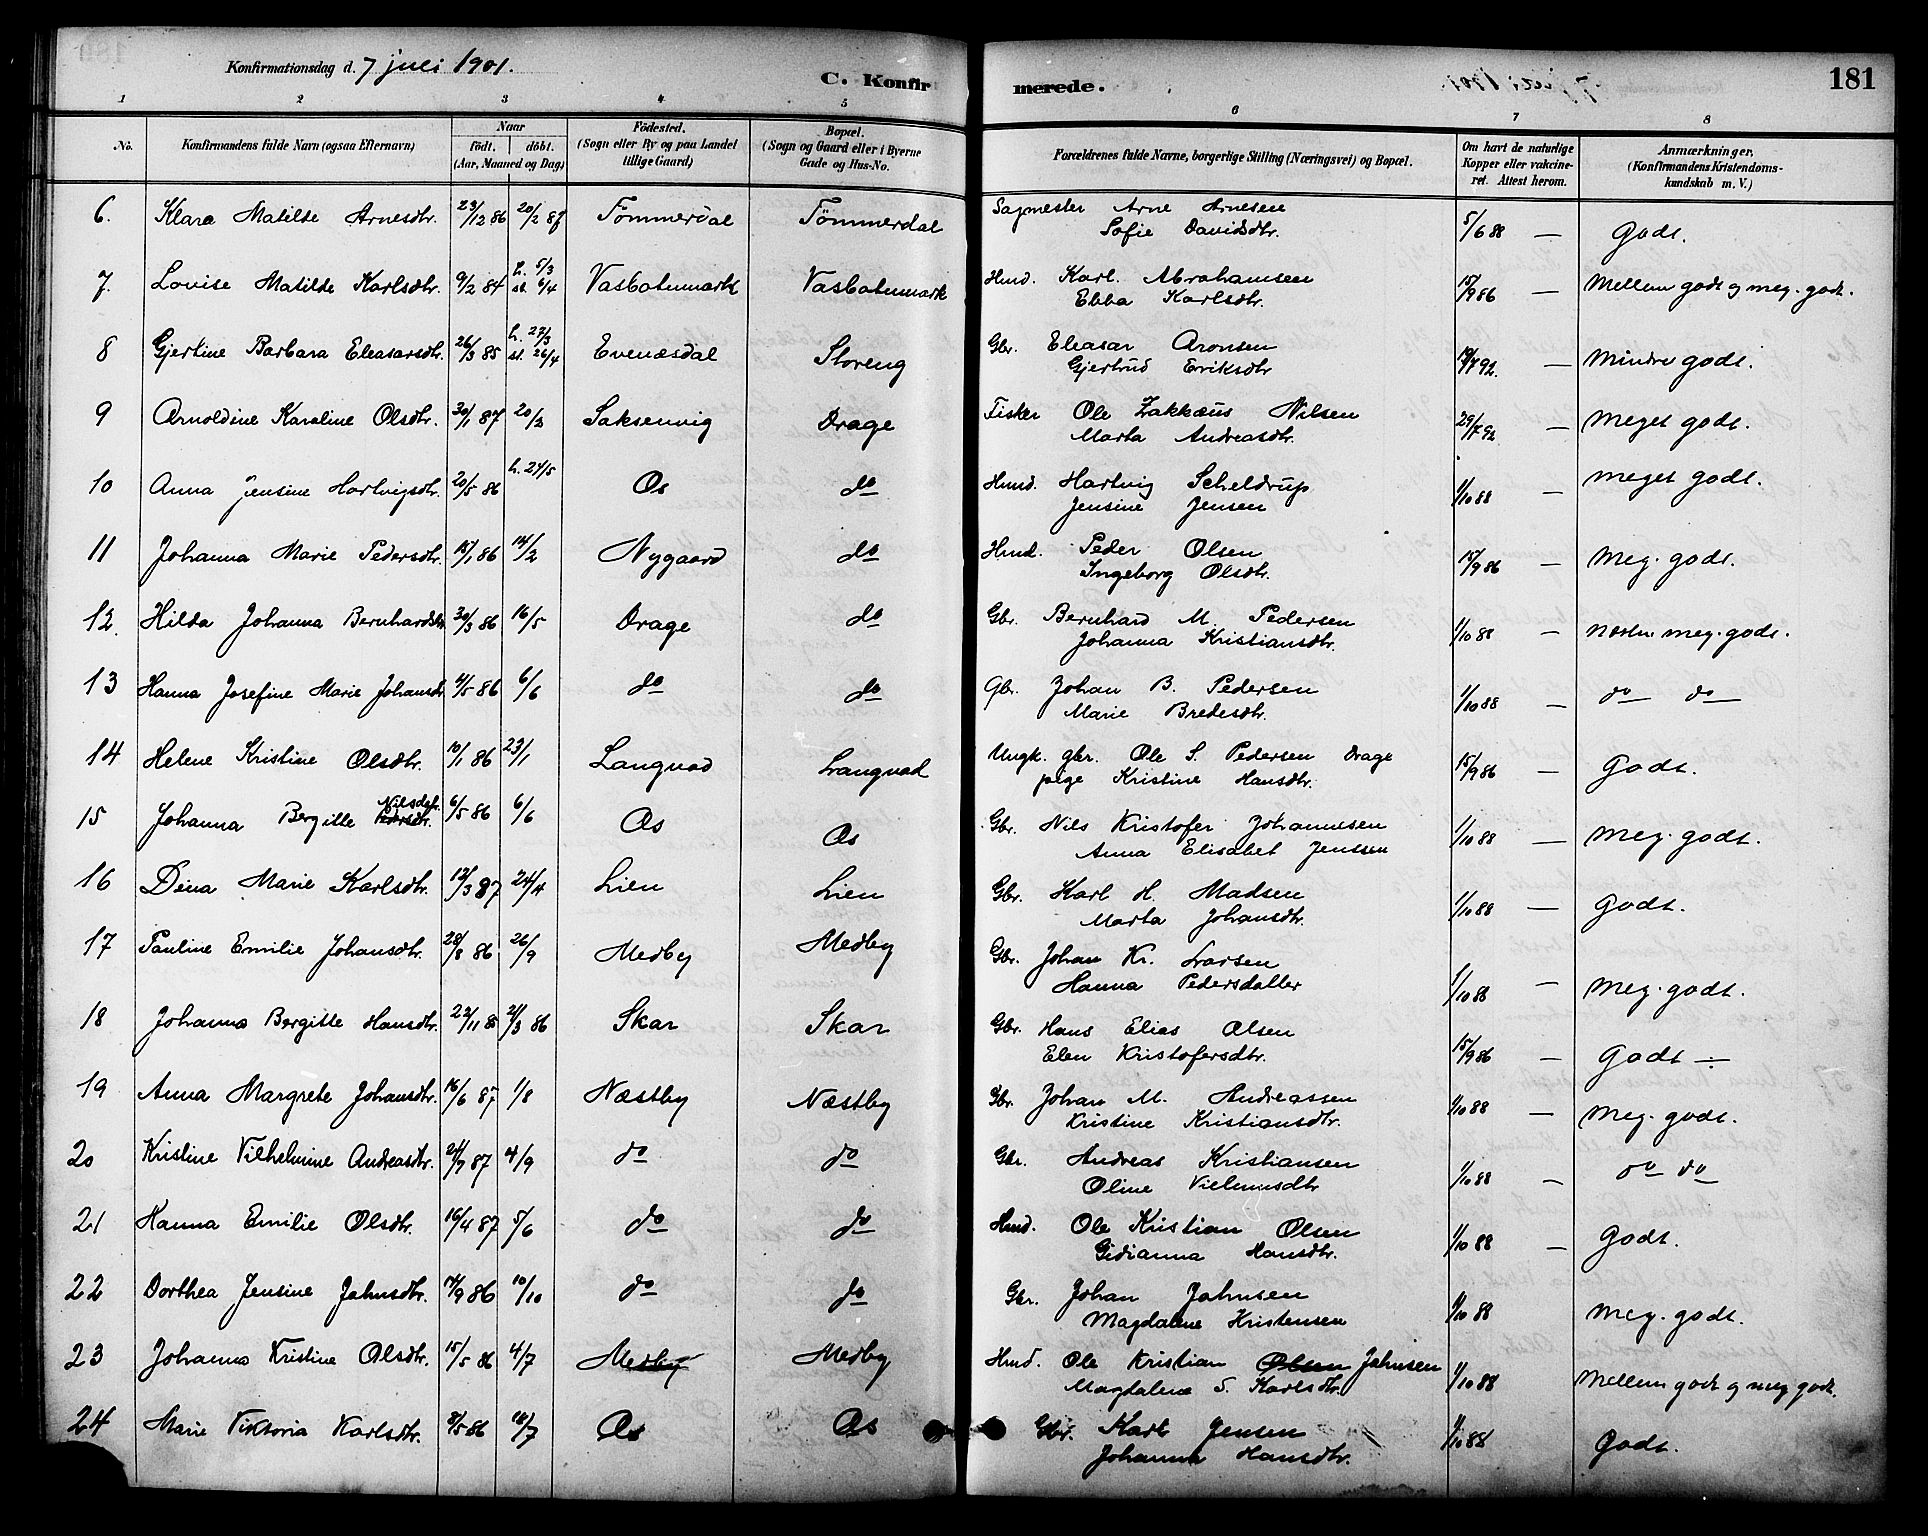 Konfirmationsdag d. 7 juli 1901.
C. Konfirmerede.
181
1 2 3 4 5 6 7 8
No. Konfirmandens fulde Navn (ogsaa Efternavn) Naar født. døbt. (Aar, Maaned og Dag) Fødested. (Sogn eller By og paa Landet tillige Gaard) Bopæl. (Sogn og Gaard eller i Byerne Gade og Hus-No. Forældrenes fulde Navne, borgerlige Stilling (Næringsvei) og Bopæl. Om havt de naturlige Kopper eller vakcineret. Attest herom. Anmærkninger, (Konfirmandens Kristendomskundskab m. V.)
6. Klara Matilde Arnesdtr. 23/12 86 20/2 87 Tømmerdal Tømmerdal Sagmester Arne Arnesen 5/6 88 — Godt.
Sofie Davidsdtr.
7. Lovise Matilde Karlsdtr. 9/2 84 h. 5/3 st. 6/4 Vasbotnmark Vasbotnmark Hmd. Karl. Abrahamsen 15/9 86 — Mellem godt og meg. godt.
Ebba Karlsdtr.
8 Gjertine Barbara Eleasarsdtr. 26/3 85 h. 27/3 st. 26/4 Evenæsdal Storeng Gbr. Eleasar Aronsen 92. — Mindre godt.
Gjertrud Eriksdtr
9 Arnoldine Karoline Olsdtr. 30/1 87 20/2 Saksenvig Drage Fisker Ole Zakkæus Nilsen 29/7 92 — Meget godt.
Marta Andreasdtr.
10 Anna Jensine Hartvigsdtr. 20/5 86 h. 24/5 Os do Hmd. Hartvig Scheldrup 1/10 88 — Meget godt.
Jensine Jensen
11 Johanna Marie Pedersdtr. 15/1 86 14/2 Nygaard do Hmd. Peder Olsen 15/9 86 — Meg. godt.
Ingeborg Olsdtr.
12. Hilda Johanna Bernhardsdtr 30/3 86 16/5 Drage do Gbr. Bernhard M. Pedersen 1/10 88 — næsten meg. godt.
Johanna Kristiansdtr.
13 Hanna Josefine Marie Johansdtr 4/5 86 6/6 do do Gbr. Johan B. Pedersen 1/10 88 — do do
Marie Bredesdtr.
14 Helene Kristine Olsdtr. 10/1 86 23/1 Langvad Langvad Ungk. gbr. Ole S. Pedersen Drage 15/9 86 — Godt.
pige Kristine Hansdtr.
15 Johanna Bergitte Pedersdtr. Nilsdtr. 6/5 86 6/6 Os Os Gbr. Nils Kristofer Johannesen 1/10 88 — Meg. godt.
Anna Elisabet Jenssen
16 Dina Marie Karlsdtr. 12/3 87 24/4 Lien Lien Gbr. Karl H. Madsen 1/10 88 — Godt.
Marta Johansdtr.
17 Pauline Emilie Johansdtr. 28/8 86. 26/9 Medby Medby Gbr. Johan Kr. Larsen 1/10 88 — Meg. godt.
Hanna Pedersdatter
18 Johanna Bergitte Hansdtr. 22/11 85 21/3 86 Skar Skar Gbr. Hans Elias Olsen 15/9 86 — Godt —
Elen Kristofersdtr.
19 Anna Margrete Johansdtr. 16/6 87 1/8 Næstby Næstby Gbr. Johan M. Andreassen 1/10 88 — Meg. godt.
Kristine Kristiansdtr.
20 Kristine Vilhelmine Andreasdtr. 24/7 87 4/9 do do Gbr. Andreas Kristiansen 1/10 88 — do do
Oline Vielmusdtr
21 Hanna Emilie Olsdtr. 16/4 87 5/6 do do Hmd. Ole Kristian Olsen 1/10 88 — Godt.
Gidianna Hansdtr.
22 Dorthea Jensine Jahnsdtr. 14/9 86 10/10 do do Gbr. Johan Jahnsen 1/10 88 Meg. godt.
Magdalene Kristensen
23 Johanna Kristine Olsdtr. 15/5 86 4/7 Medby Medby Hmd. Ole Kristian Olsen Jahnsen 1/10 88 Mellem godt og meg. godt.
Magdalena S. Karlsdtr.
24 Marie Viktoria Karlsdtr. 8/5 86 18/7 Os Os Gbr. Karl Jensen 1/10 88 Godt.
Johanna Hansdtr.